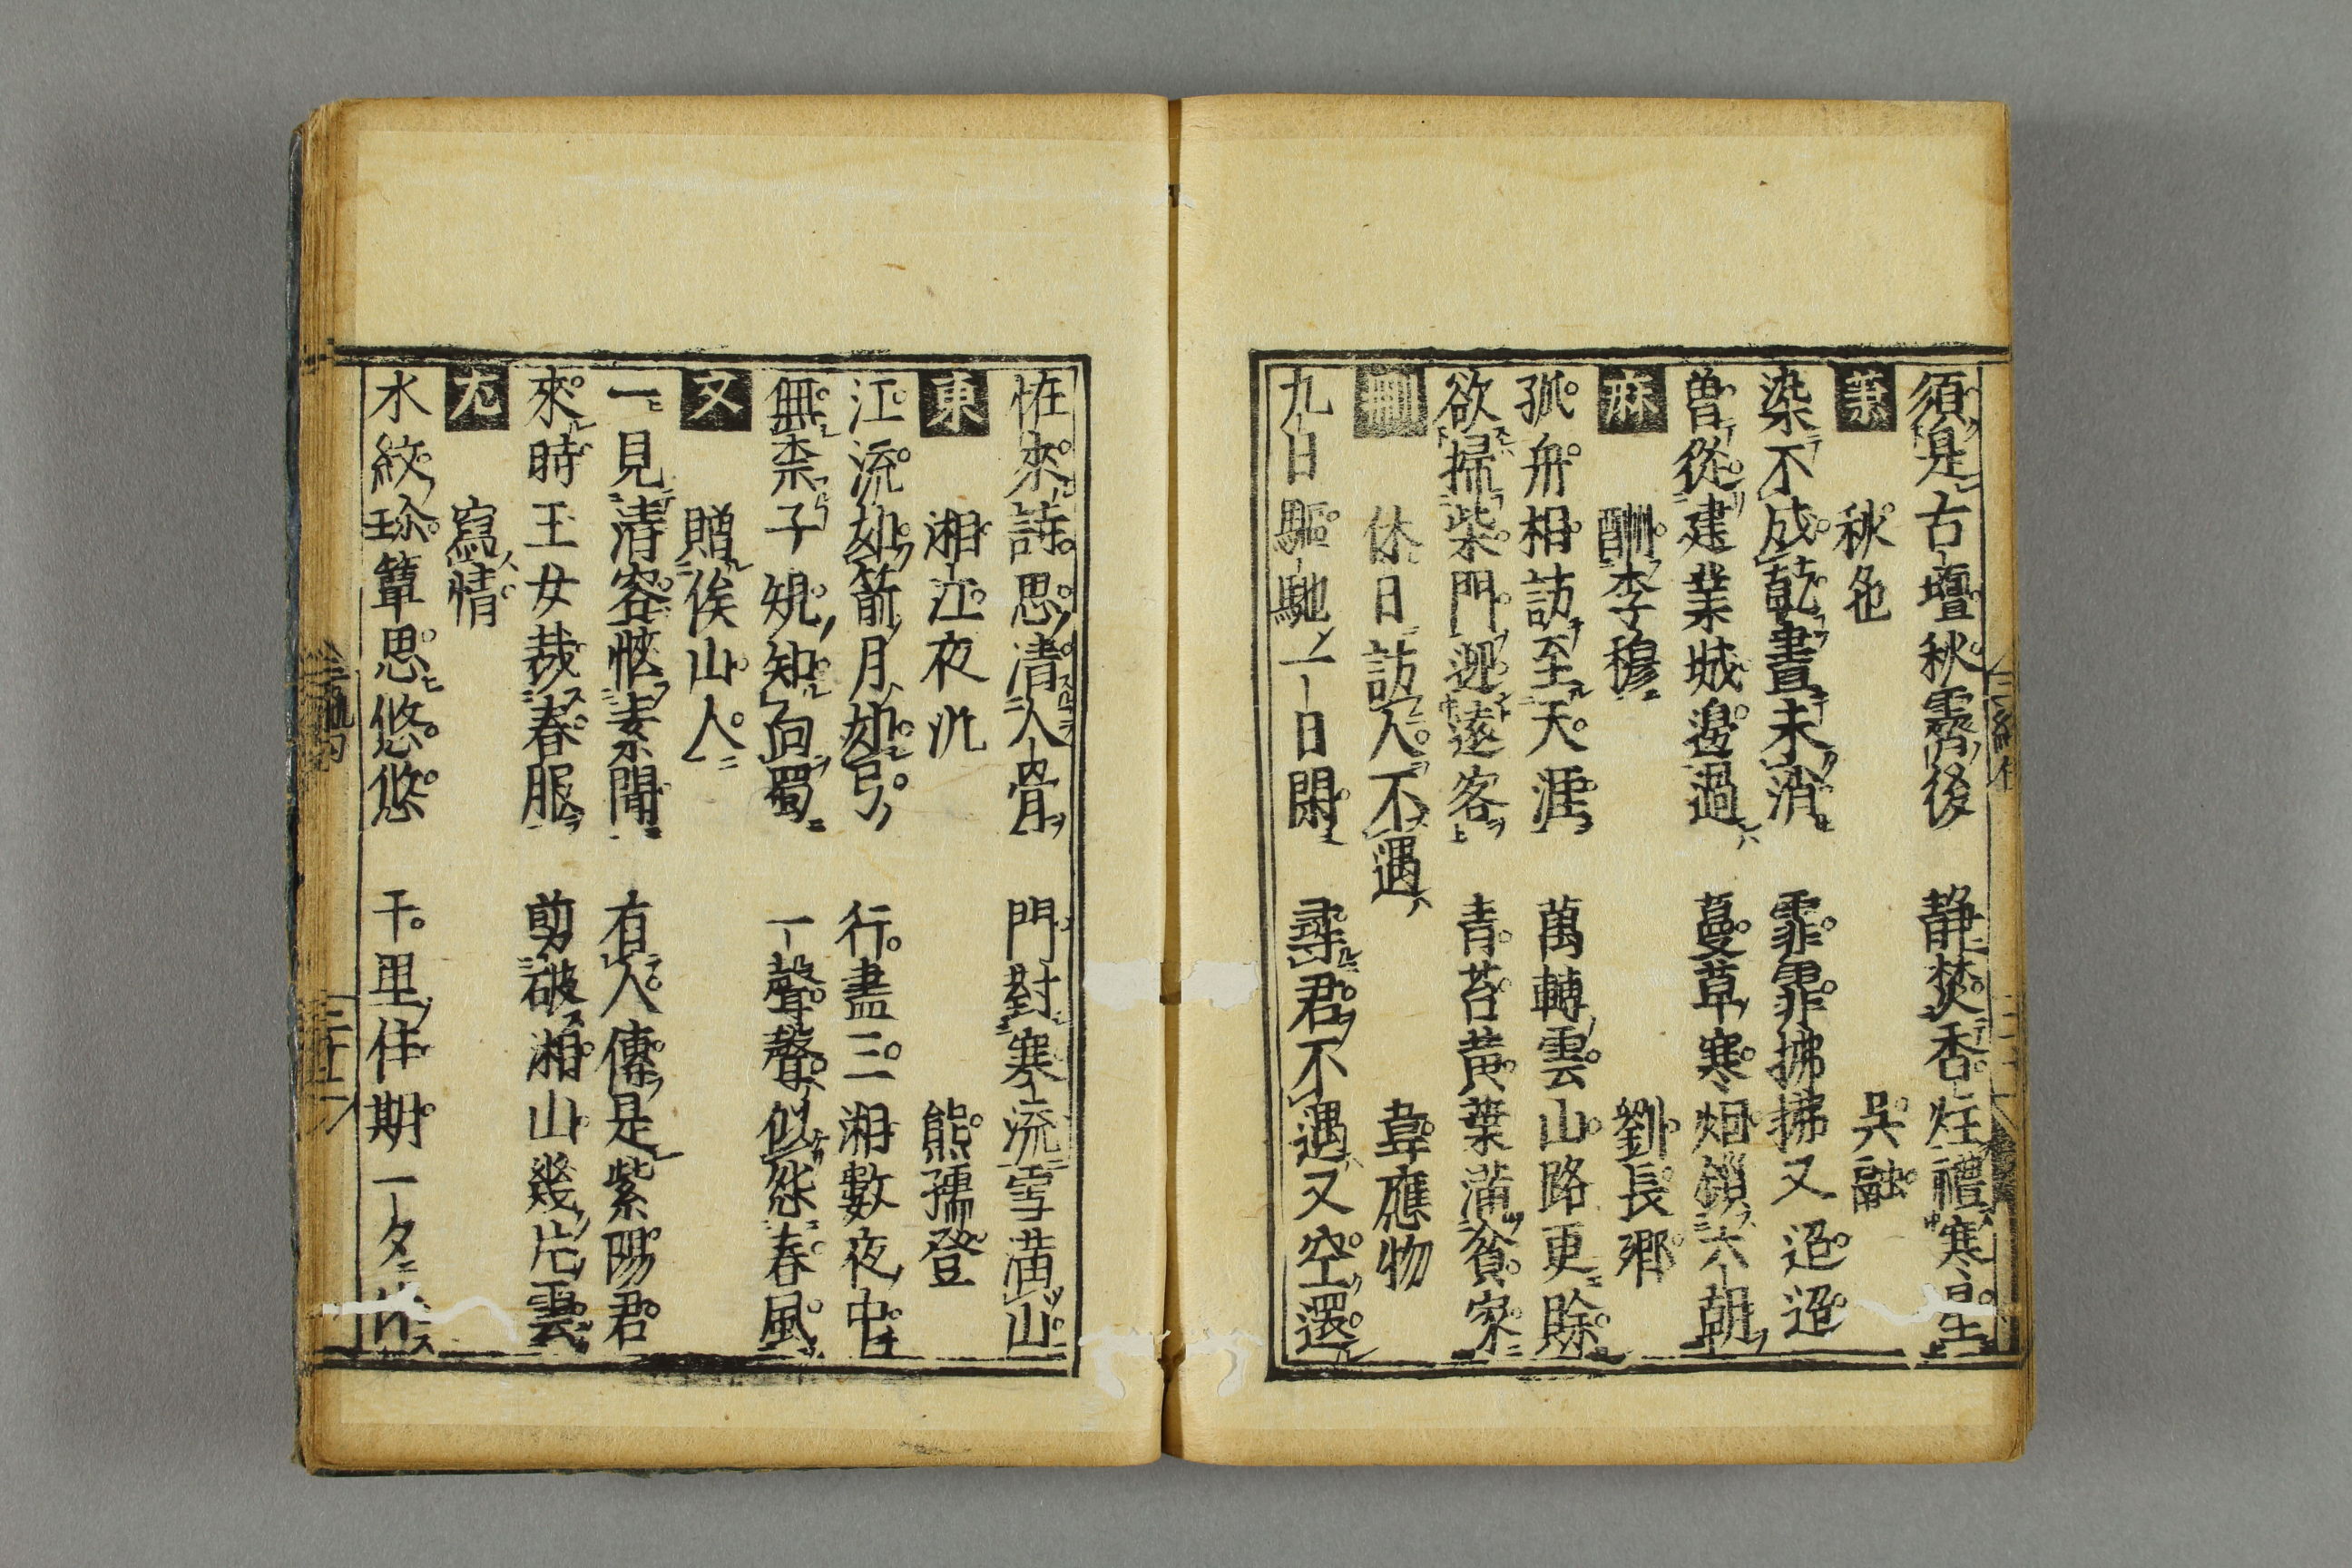 須是古壇秋霽後　静焚香炷禮寒星
蕭　秋色　吳融
染不成乾畫未消　霏霏拂拂又迢迢
曽從建業城邊過　蔓草寒烟鎖六朝
麻　酬李穆　劉長卿
孤舟相訪至天涯　萬轉雲山路更賖
欲掃柴門迎遠客　青苔黄葉滿貧家
刪　休日訪人不遇　韋應物
九日驅馳一日閑　尋君不遇又空還
恠來詩思清人骨　門對寒流雪満山
東　湘江夜汎　熊孺登
江流如箭月如弓　行盡三湘數夜中
無柰子規知向蜀　一聲聲似怨春風
文　贈侯山人
一見清容愜素聞　有人傳是紫陽君
來時玉女裁春服　剪破湘山幾片雲
尤　寫情
水紋珎簟思悠悠　千里佳期一夕休